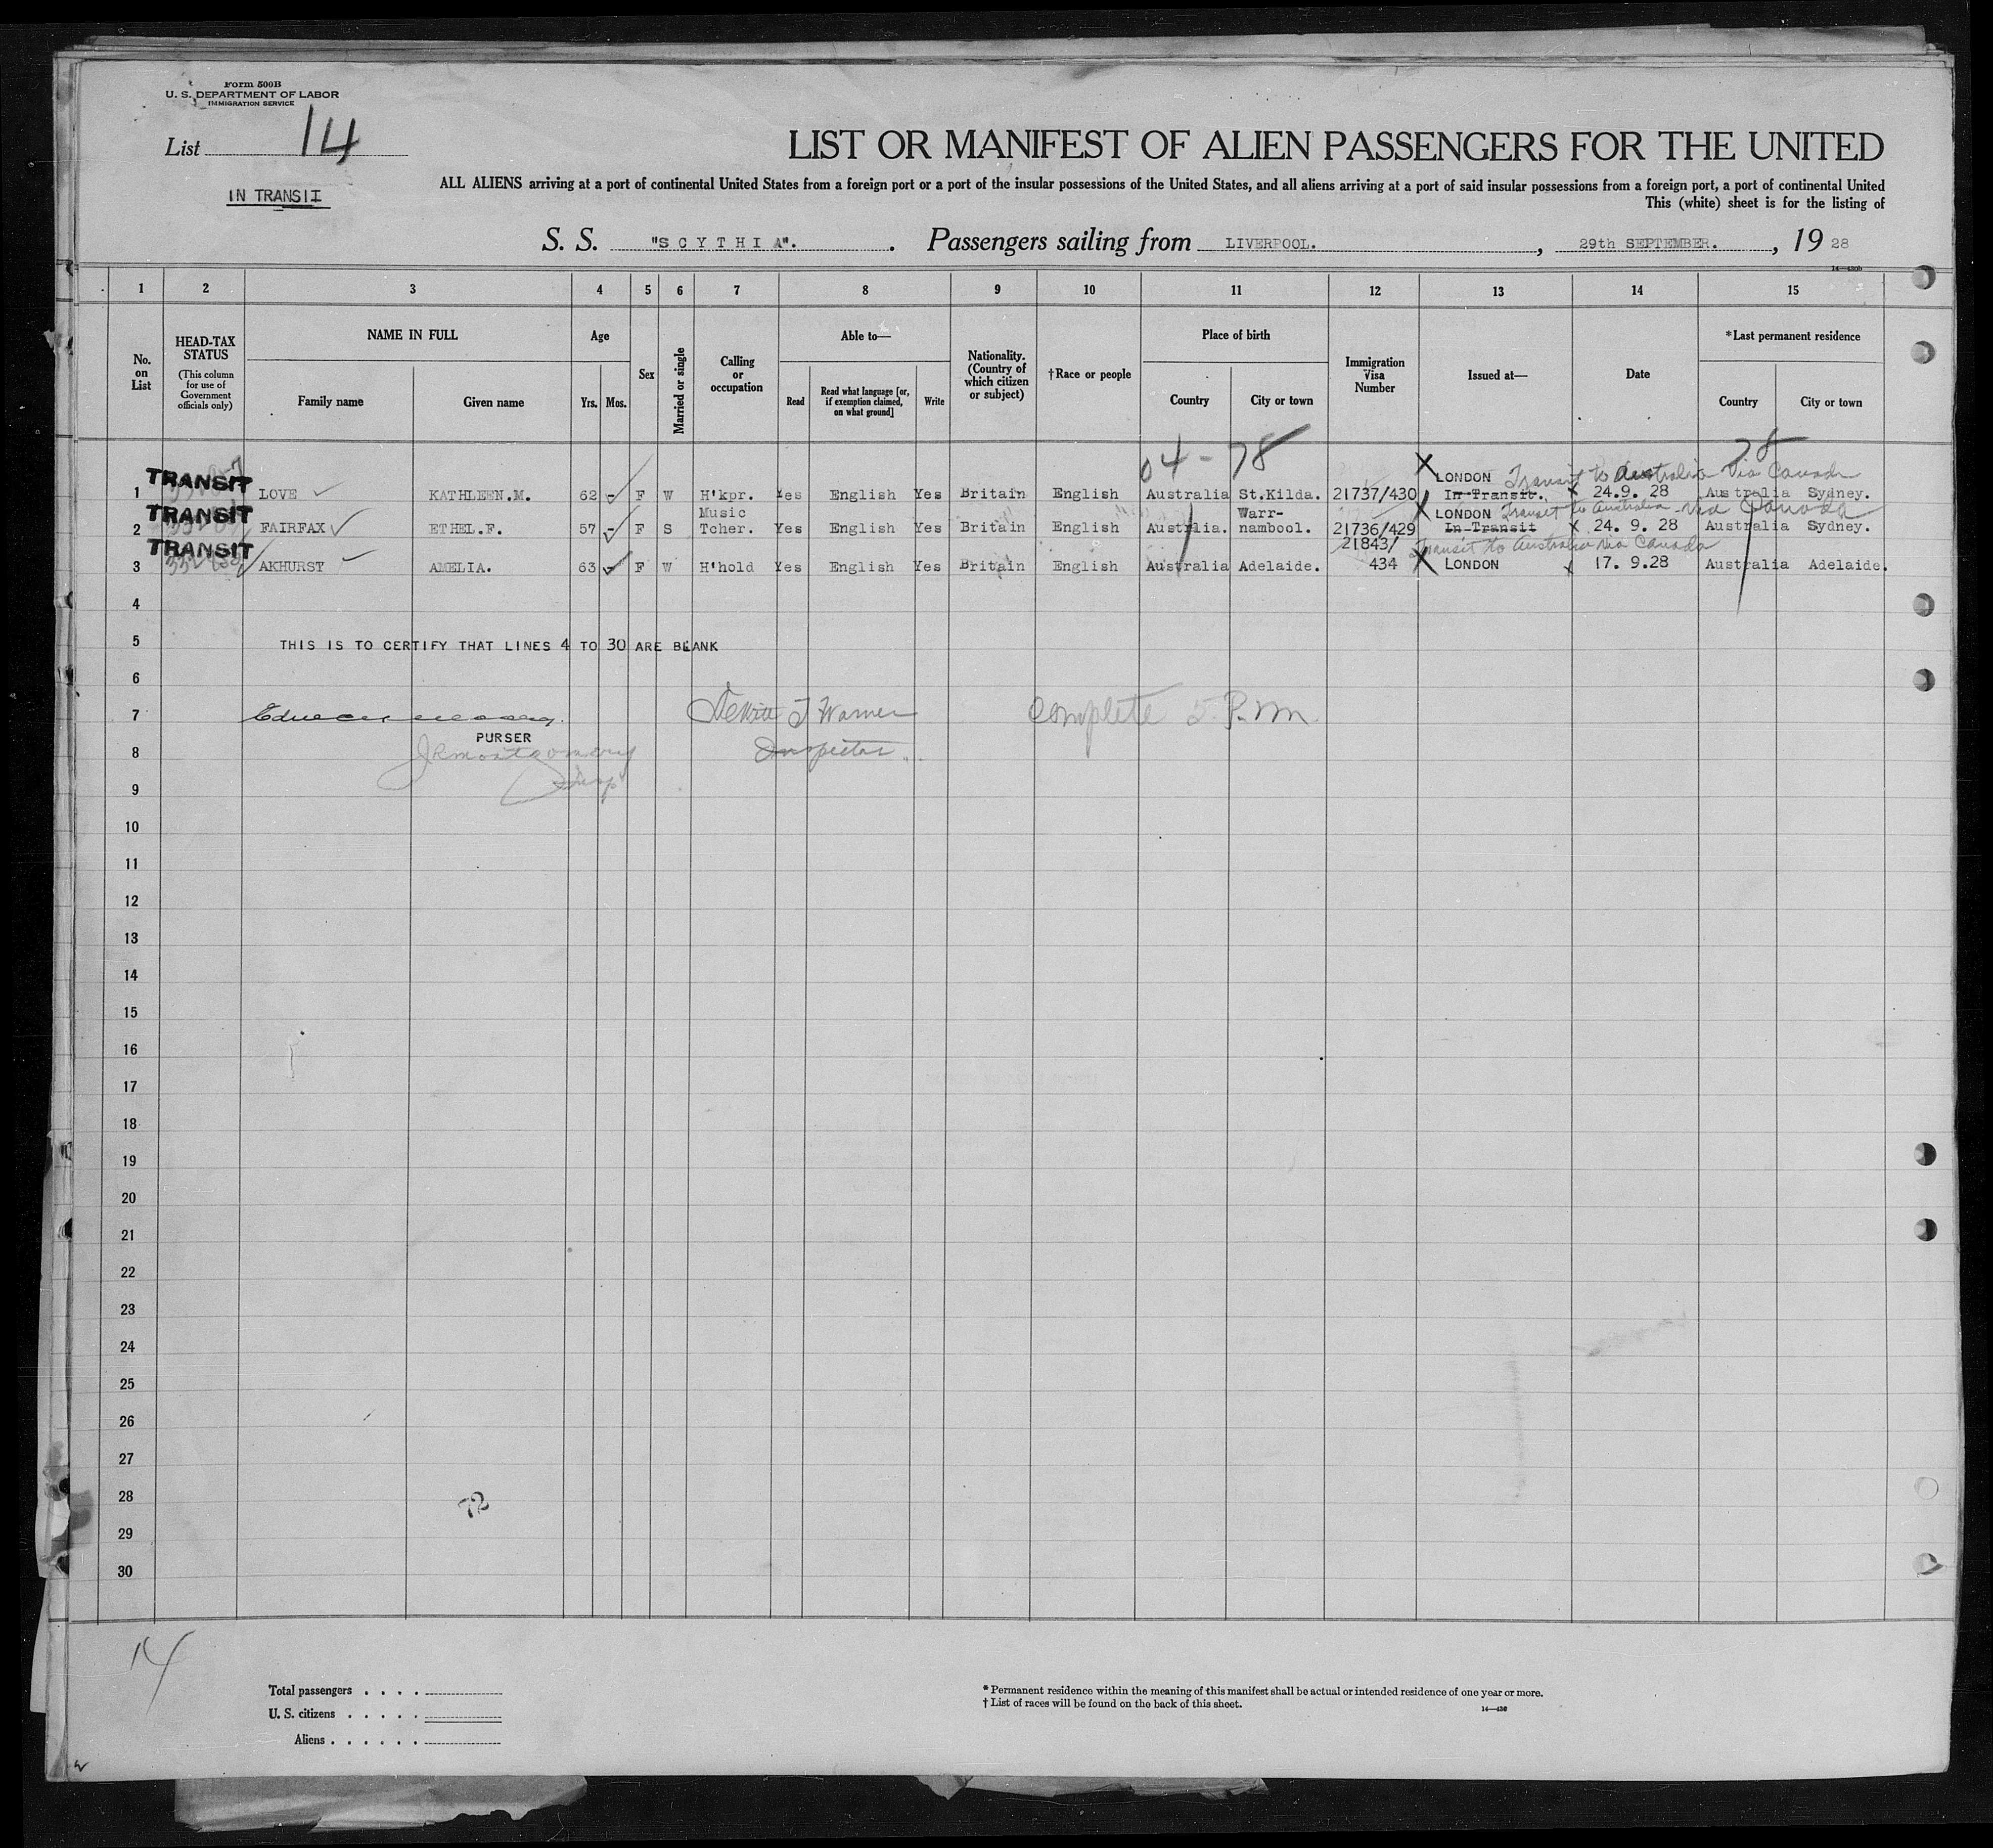 Form 500B
U. S. DEPARTMENT OF LABOR
IMMIGRATION SERVICE
List 14
IN TRANSIT
LIST OR MANIFEST OF ALIEN PASSENGERS FOR THE UNITED
ALL ALIENS arriving at a port of continental United States from a foreign port or a port of the insular possessions of the United States, and all aliens arriving at a port of said insular possessions from a foreign port, a port of continental United
This (white) sheet is for the listing of
S. S. "SCYTHIA". Passengers sailing from LIVERPOOL. , 29th SEPTEMBER. , 19 28
1 2 3 4 5 6 7 8 9 10 11 12 13 14 15
No. on List
HEAD-TAX STATUS (This column for use of Government officials only)
NAME IN FULL
Family name Given name
Age
Yrs. Mos.
Sex
Married or single
Calling or occupation
Able to—
Read Read what language [or, if exemption claimed, on what ground] Write
Nationality. (Country of which citizen or subject)
†Race or people
Place of birth
Country City or town
Immigration Visa Number
Issued at—
Date
*Last permanent residence
Country City or town
04 - 78 78
LONDON Transit to Australia Via Canada
TRANSIT
1 LOVE KATHLEEN.M. 62 - F W H'kpr. Yes English Yes Britain English Australia St.Kilda. 21737/430 In Transit. x 24.9. 28 Australia Sydney.
TRANSIT Music Warr- LONDON Transit to Australia via Canada
2 FAIRFAX ETHEL.F. 57 - F S Tcher. Yes English Yes Britain English Australia. nambool. 21736/429 In Transit x 24. 9. 28 Australia Sydney.
TRANSIT 21843/ Transit to Australia via Canada
3 AKHURST AMELIA. 63 - F W H'hold Yes English Yes Britain English Australia Adelaide. 434 X LONDON x 17. 9.28 Australia Adelaide.
4
5 THIS IS TO CERTIFY THAT LINES 4 TO 30 ARE BLANK
6
7 DeWitt T Warner complete 5 P.m.
PURSER
8 JRMontgomery Inspector
9 Insp
10
11
12
13
14
15
16
17
18
19
20
21
22
23
24
25
26
27
28 72
29
30
14
Total passengers . . . .
U. S. citizens . . . . .
Aliens . . . . . .
* Permanent residence within the meaning of this manifest shall be actual or intended residence of one year or more.
† List of races will be found on the back of this sheet.
14—430